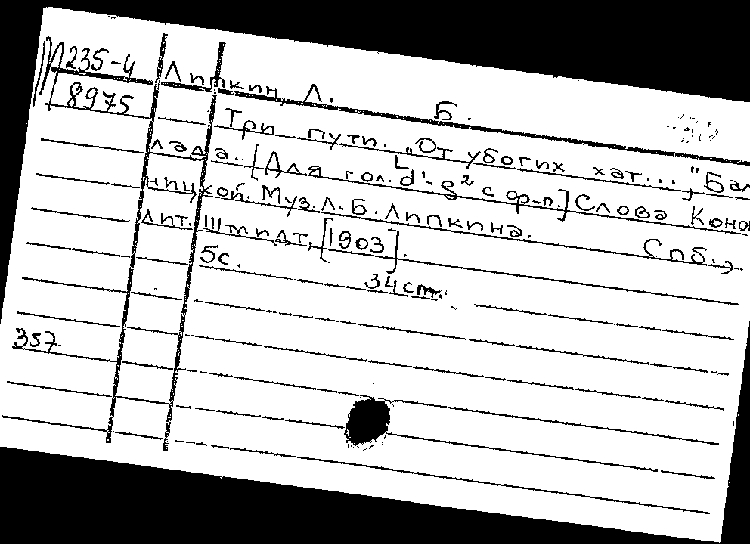 М235-4
8975
Липкин, Л. Б.
Три пути. „От убогих хат...", Бал
лада. [Для гол. d¹-g² с ф-п.] Слова Коно
ницкой. Муз. Л. Б. Липкина. Спб.,
лит. Шмидт, [1903].
5с. 34cm.
357